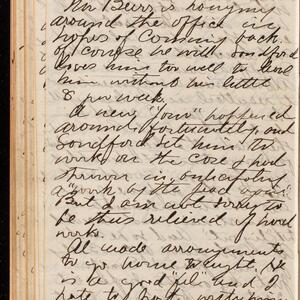 Mr Burr is hanging
around the office in
hopes of coming back
of course he will. Sandford
loves him too well to lose
him without his little
8 per week.
A new "jour" happened
around fortunately and
Sandford set him to
work on the case & put
in
a "work of the dead
But I am not sorry to
be thus relieved of hard
work.
Al made arrangements
to go home to night. He
is a good "fel" and I
hate to part with him